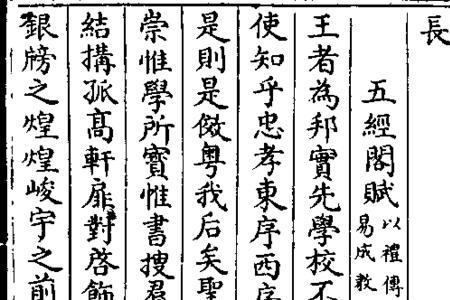 長
五經閣賦以禮傳易成教
王者為邦實先學校不
使知乎忠孝東序西序
是則是傚粵我后矣聖
崇惟學所寶惟書搜君
結搆孤高軒扉對啓飾
銀牓之煌煌峻宇之前